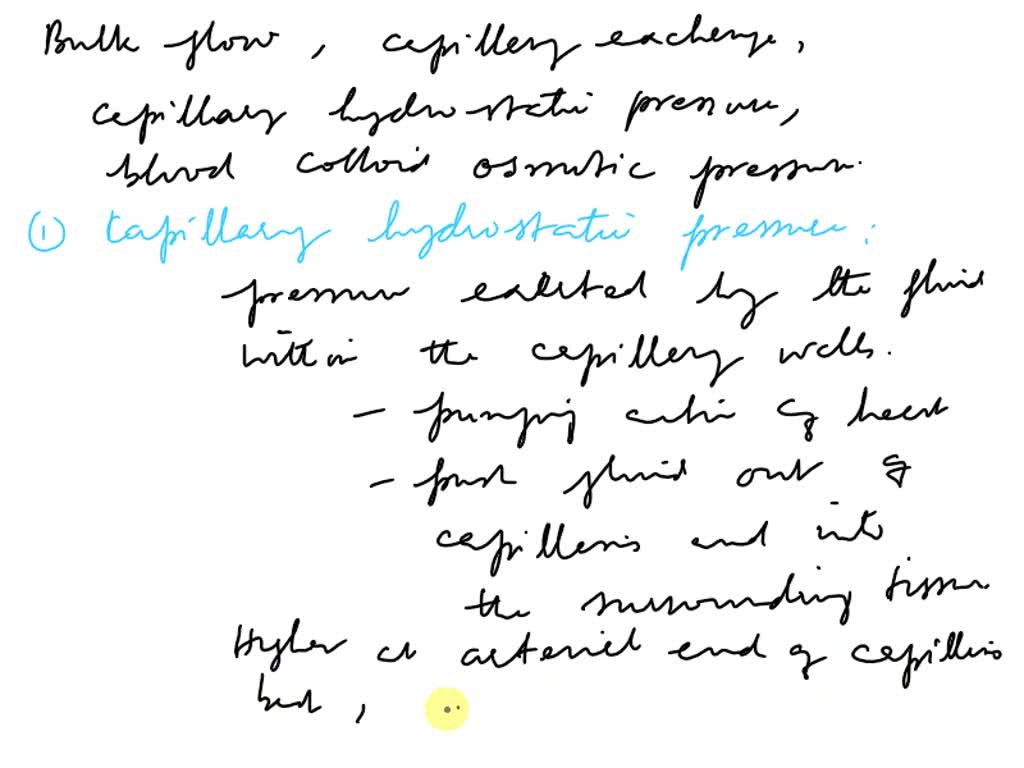 Bulk flow, capillary exchange,
capillary hydrostatic pressure,
blood colloid osmotic pressure.
① Capillary hydrostatic pressure:
pressure exerted by the fluid
within the capillary walls.
- pumping action of heart
- push fluid out of
capilleries and into
the surrounding tissue.
Higher at arterial end of capilleris
bed,